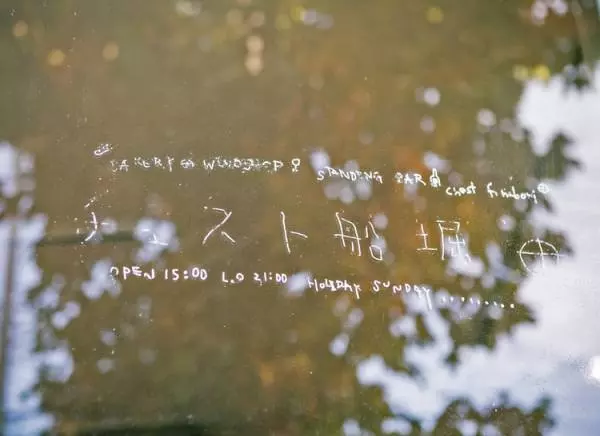 BAKERY WINESHOP STANDING BAR chest funabori
チェスト船堀
OPEN 15:00 L.O 21:00 HOLIDAY SUNDAY.........